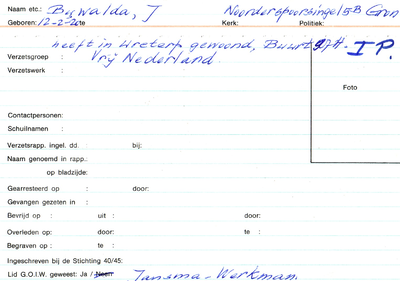 Naam etc.: Buwalda, J Noorderspoorsingel 5B Gron
Geboren: 12-2-20 te Kerk: Politiek:
heeft in Ureterp gewoond, Buurt I.P.
Verzetsgroep : Vrij Nederland
Verzetswerk :
Foto
Contactpersonen:
Schuilnamen :
Verzetsrapp. ingel. dd. : bij:
Naam genoemd in rapp.:
op bladzijde:
Gearresteerd op : door:
Gevangen gezeten in :
Bevrijd op : uit : door:
Overleden op : door: te :
Begraven op : te :
Ingeschreven bij de Stichting 40/45:
Lid G.O.I.W. geweest: Ja / Neen Tansma - Werkman.